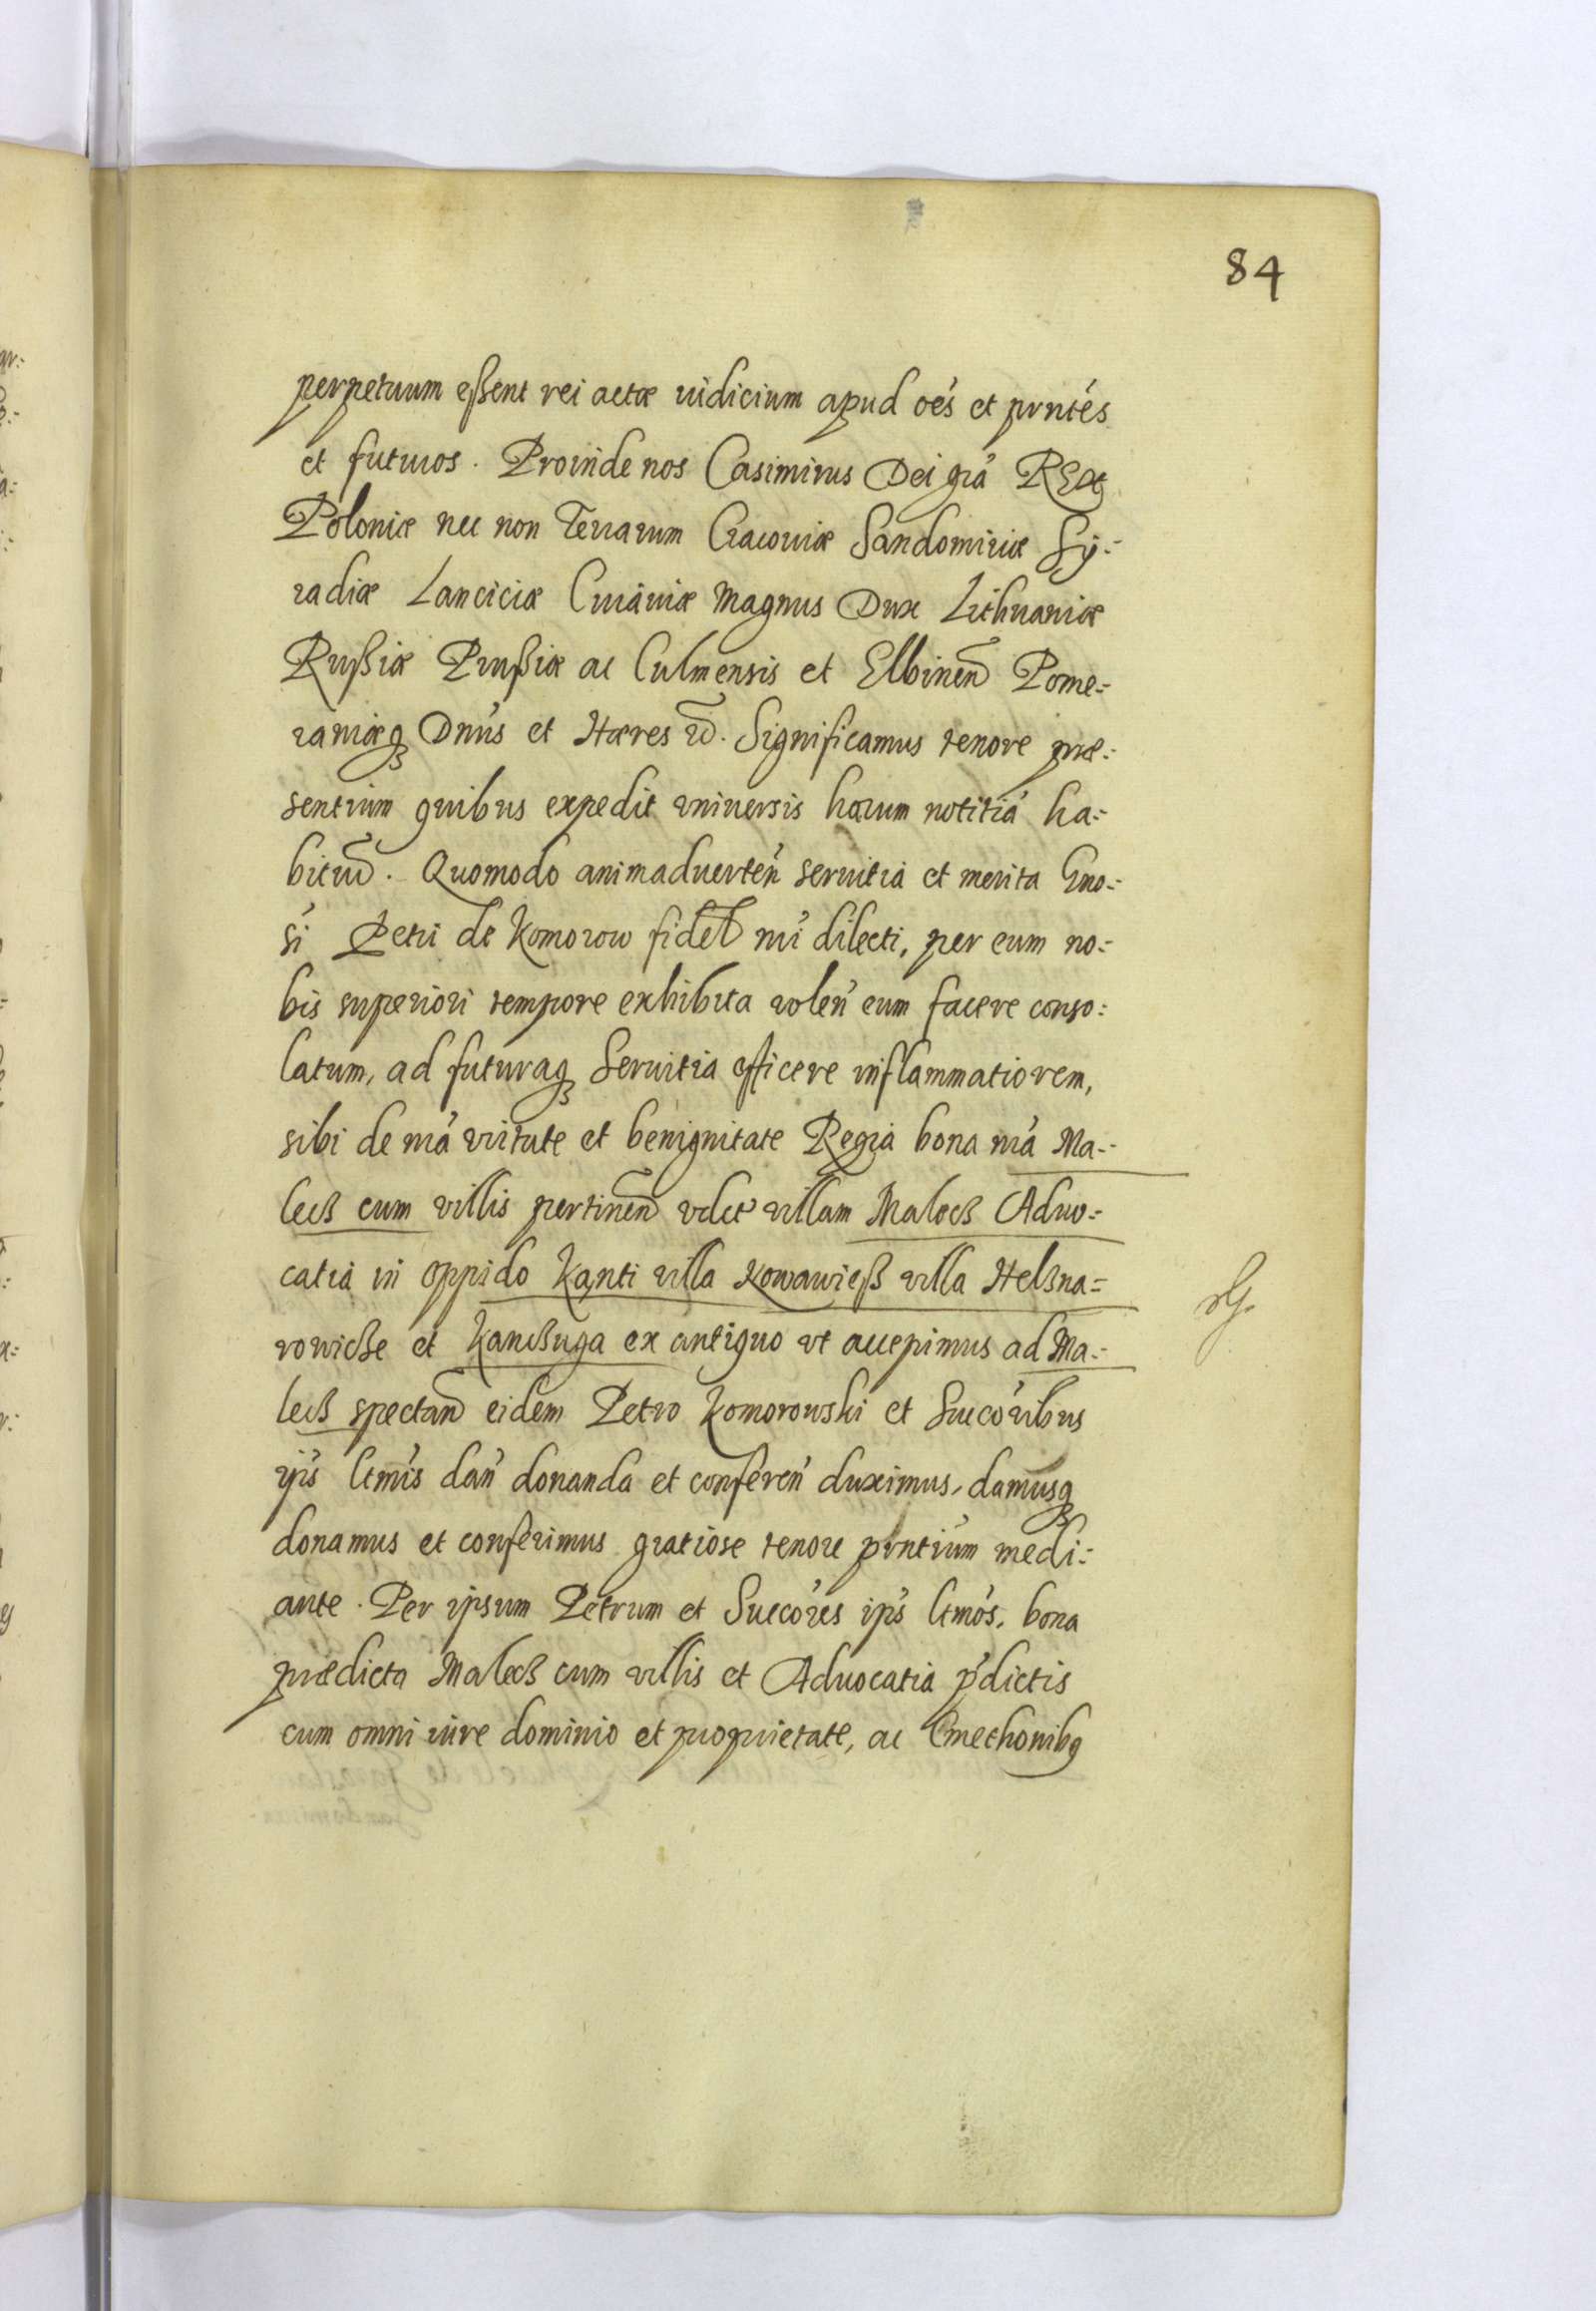 84
perpetuum eßent rei actæ iudicium apud oe's et prnte's
et futuros. Proinde nos Casimirus Dei gra' REX
Poloniæ nec non Terrarum Cracouiæ Sandomiriæ Sÿ:
radiæ Lanciciæ Cuiauiæ Magnus Dux Lithuaniæ
Rußiæ Prußiæ ac Culmensis et Elbinen Pome:
raniæq Dnu's et Hæres. Significamus tenore præ:
sentium quibus expedit vniuersis harum notitia' ha:
bitur. Quomodo animaduerten' seruitia et merita Gno:
si' Petri de Komorow fidel nri' dilecti, per eum no:
bis superiori tempore exhibita volen' eum facere conso:
latum, ad futuraq Seruitia efficere inflammatiorem,
sibi de nra' virtute et benignitate Regia bona nra' Ma:
lecß cum villis pertinen vdct villam Malecß Aduo:
catia in oppido Kanti villa Kowawieß villa Helßna:
rowicße et Kancßuga ex antiquo vt accepimus ad Ma:
lecß spectan eidem Petro Komorowski et Succo'ribus
ipi's ltmi's dan' donanda et conferen' duximus, damusq
donamus et conferimus gratiose tenore prntium medi:
ante. Per ipsum Petrum et Succo'res ipi's ltmo's, bona
prædicta Malecß cum villis et Aduocatia p'dictis
cum omni iure dominio et proprietate, ac Cmethonibq